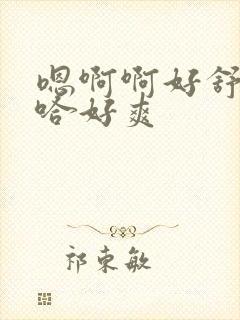 嗯啊啊好舒
哈好爽
祁东敏